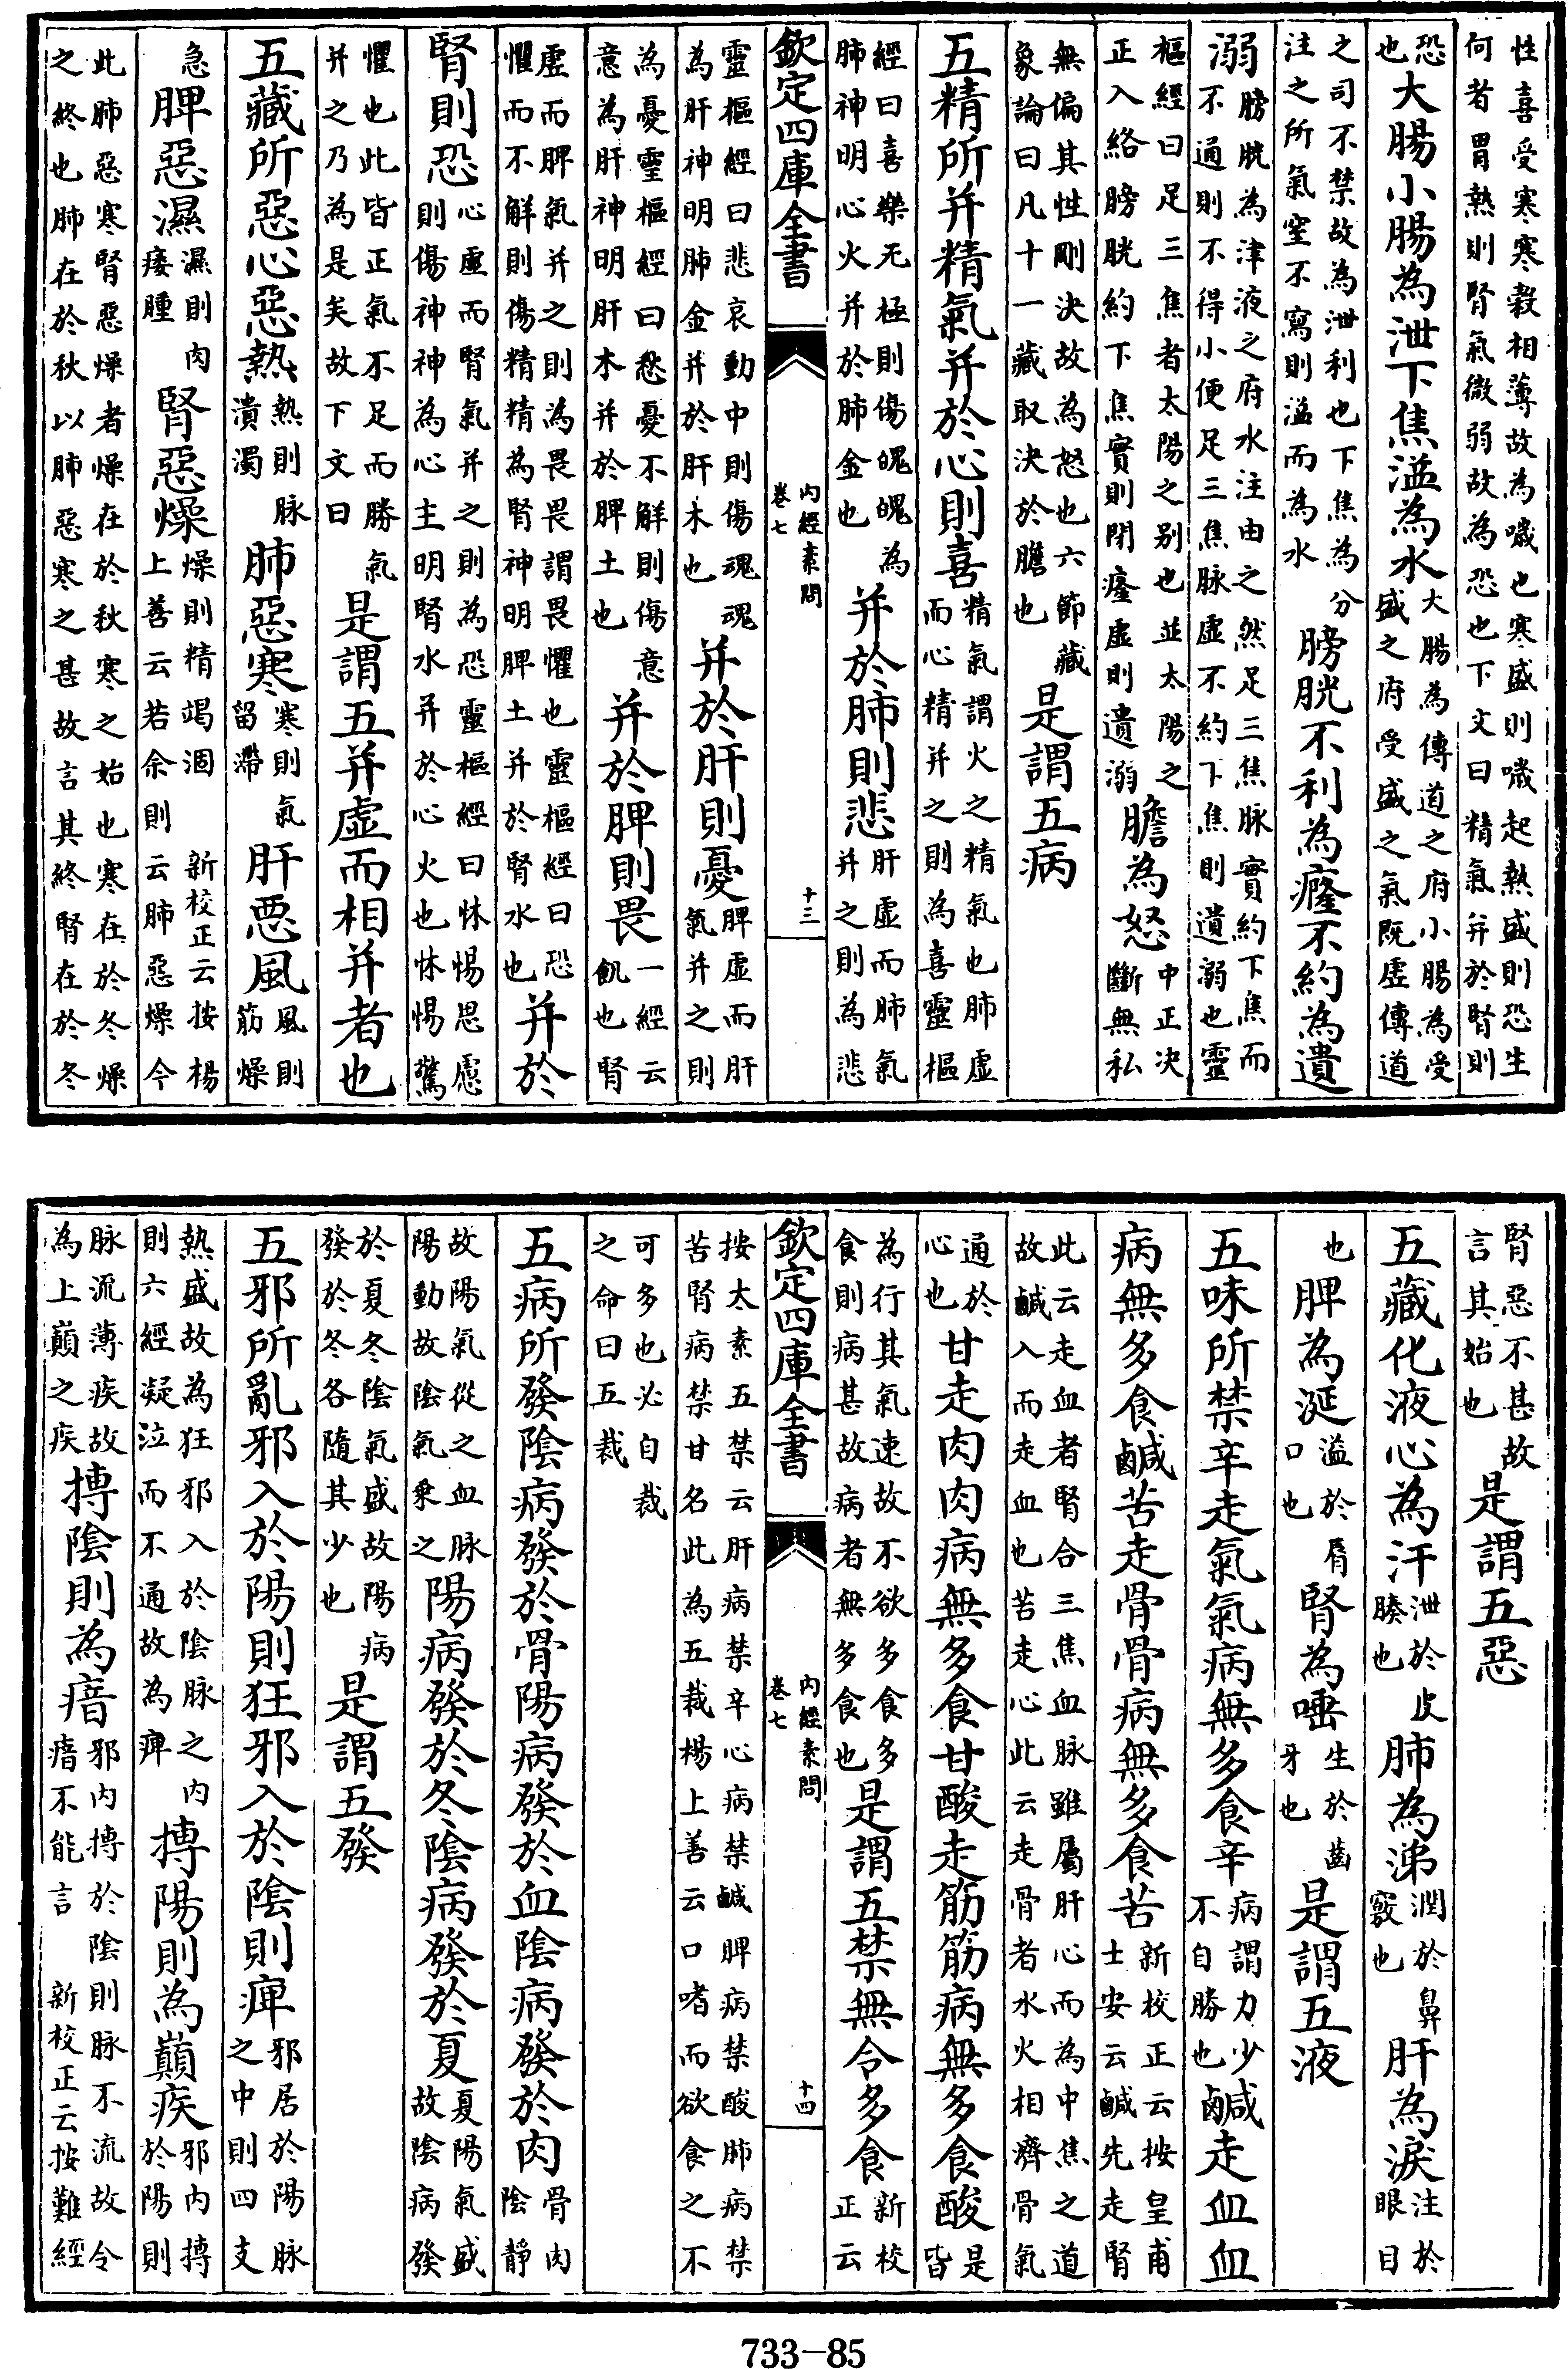 性喜受寒寒穀相薄故為噦也寒盛則噦起熱盛則恐生
何者胃熱則腎氣微弱故為恐也下文曰精氣并於腎則
恐也大腸小腸為泄下焦溢為水大腸為傳道之府小腸為受盛之府受盛之氣既虛傳道
之司不禁故為泄利也下焦為分注之所氣窒不寫則溢而為水膀胱不利為癃不約為遺
溺膀胱為津液之府水注由之然足三焦脉實約下焦而不通則不得小便足三焦脉虛不約下焦則遺溺也靈
樞經曰足三焦者太陽之别也並太陽之正入絡膀胱約下焦實則閉癃虛則遺溺膽為怒中正决斷無私
無偏其性剛決故為怒也六節藏象論曰凡十一藏取決於膽也是謂五病
五精所并精氣并於心則喜精氣謂火之精氣也肺虛而心精并之則為喜靈樞
經曰喜樂无極則傷魄魄為肺神明心火并於肺金也并於肺則悲肝虛而肺氣并之則為悲
欽定四庫全書 內經素問 卷七 十三
靈樞經曰悲哀動中則傷魂魂為肝神明肺金并於肝木也并於肝則憂脾虛而肝氣并之則
為憂靈樞經曰愁憂不解則傷意意為肝神明肝木并於脾土也并於脾則畏一經云飢也腎
虛而脾氣并之則為畏畏謂畏懼也靈樞經曰恐懼而不解則傷精精為腎神明脾土并於腎水也并於
腎則恐心虛而腎氣并之則為恐靈樞經曰怵惕思慮則傷神神為心主明腎水并於心火也怵惕驚
懼也此皆正氣不足而勝氣并之乃為是矣故下文曰是謂五并虛而相并者也
五藏所惡心惡熱熱則脉潰濁肺惡寒寒則氣留滯肝惡風風則筋燥
急脾惡濕濕則肉痿腫腎惡燥燥則精竭涸 新校正云按楊上善云若余則云肺惡燥今
此肺惡寒腎惡燥者燥在於秋寒之始也寒在於冬燥
之終也肺在於秋以肺惡寒之甚故言其終腎在於冬
腎惡不甚故言其始也是謂五惡
五藏化液心為汗泄於皮腠也肺為涕潤於鼻竅也肝為淚注於眼目
也脾為涎溢於脣口也腎為唾生於齒牙也是謂五液
五味所禁辛走氣氣病無多食辛病謂力少不自勝也鹹走血血
病無多食鹹苦走骨骨病無多食苦新校正云按皇甫士安云鹹先走腎
此云走血者腎合三焦血脉雖屬肝心而為中焦之道
故鹹入而走血也苦走心此云走骨者水火相濟骨氣
通於心也甘走肉肉病無多食甘酸走筋筋病無多食酸是皆
為行其氣速故不欲多食多食則病甚故病者無多食也是謂五禁無令多食新校正云
欽定四庫全書 內經素問 卷七 十四
按太素五禁云肝病禁辛心病禁鹹脾病禁酸肺病禁
苦腎病禁甘名此為五裁楊上善云口嗜而欲食之不
可多也必自裁之命曰五裁
五病所發陰病發於骨陽病發於血陰病發於肉骨肉陰靜
故陽氣從之血脉陽動故陰氣乘之陽病發於冬陰病發於夏夏陽氣盛故陰病發
於夏冬陰氣盛故陽病發於冬各隨其少也是謂五發
五邪所亂邪入於陽則狂邪入於陰則痺邪居於陽脉之中則四支
熱盛故為狂邪入於陰脉之內則六經凝泣而不通故為痺搏陽則為巔疾邪內搏於陽則
脉流薄疾故為上巔之疾搏陰則為瘖邪內搏於陰則脉不流故令瘖不能言 新校正云按難經
733-85